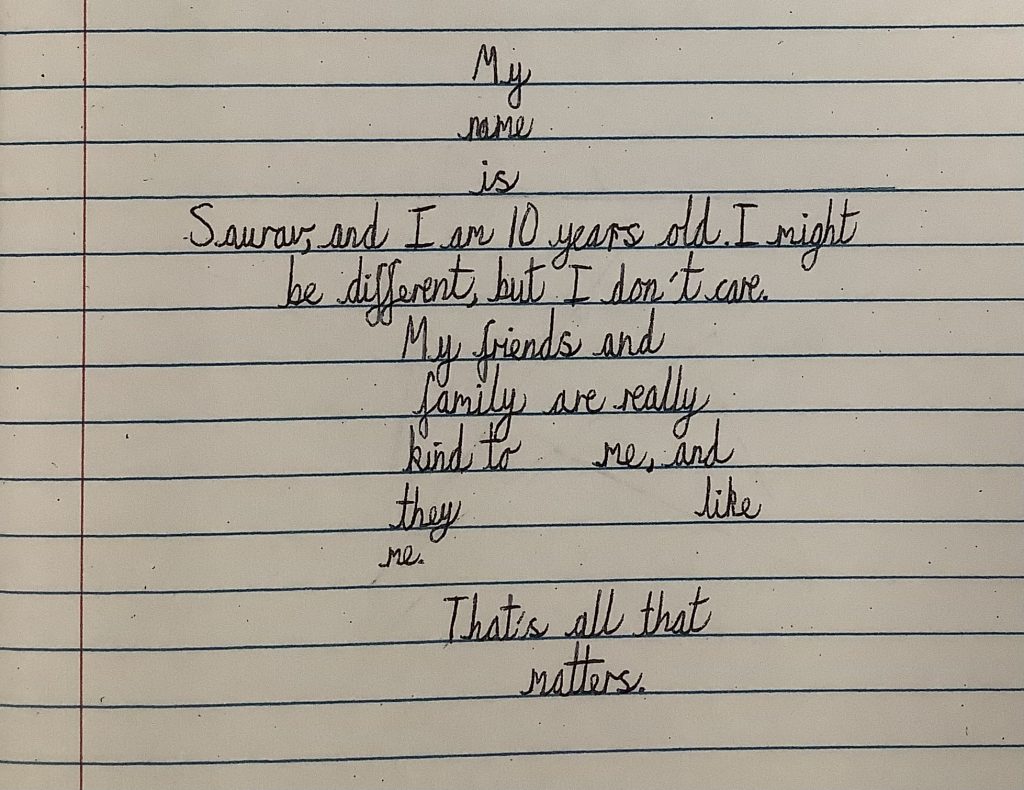 My
name
is
Saurav, and I am 10 years old. I might
be different, but I don't care.
My friends and
family are really
kind to me, and
they like
me.
That's all that
matters.